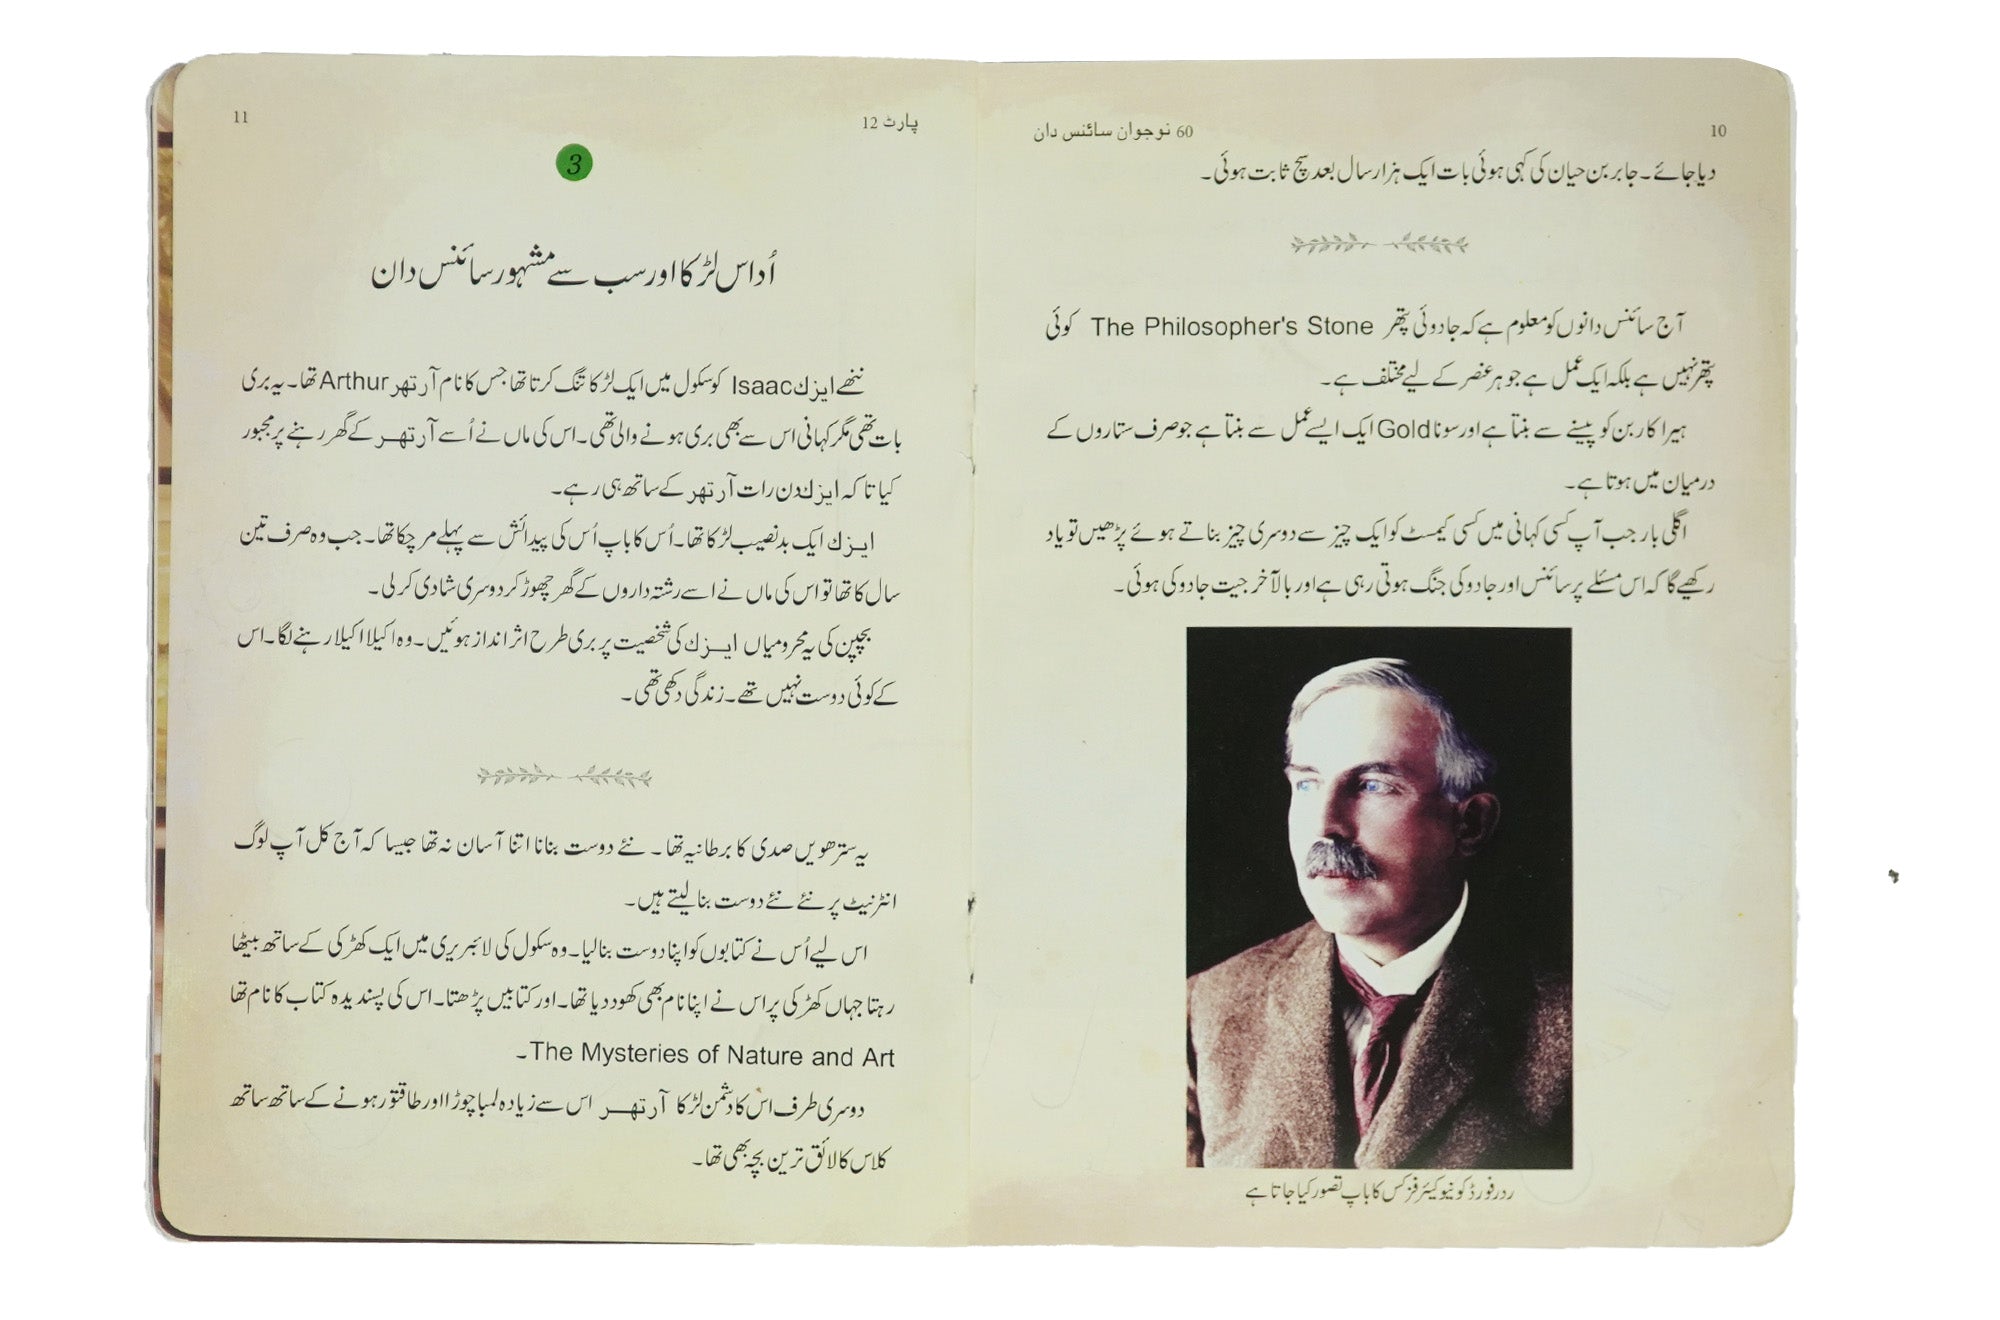 10
60 نوجوان سائنس دان
دیا جائے۔ جابر بن حیان کی کہی ہوئی بات ایک ہزار سال بعد سچ ثابت ہوئی۔
آج سائنس دانوں کو معلوم ہے کہ جادوئی پتھر The Philosopher's Stone کوئی
پتھر نہیں ہے بلکہ ایک عمل ہے جو ہر عنصر کے لیے مختلف ہے۔
ہیرا کاربن کو پیسنے سے بنتا ہے اور سونا Gold ایک ایسے عمل سے بنتا ہے جو صرف ستاروں کے
درمیان میں ہوتا ہے۔
اگلی بار جب آپ کسی کہانی میں کسی کیمسٹ کو ایک چیز سے دوسری چیز بناتے ہوئے پڑھیں تو یاد
رکھیے گا کہ اس مسئلے پر سائنس اور جادو کی جنگ ہوتی رہی ہے اور بالآخر جیت جادو کی ہوئی۔
ردرفورڈ کو نیوکیئر فزکس کا باپ تصور کیا جاتا ہے
پارٹ 12
11
3
اُداس لڑکا اور سب سے مشہور سائنس دان
ننھے ایزک Isaac کو سکول میں ایک لڑکا تنگ کرتا تھا جس کا نام آرتھر Arthur تھا۔ یہ بری
بات تھی مگر کہانی اس سے بھی بری ہونے والی تھی۔ اس کی ماں نے اُسے آرتھر کے گھر رہنے پر مجبور
کیا تا کہ ایزک دن رات آرتھر کے ساتھ ہی رہے۔
ایزک ایک بدنصیب لڑکا تھا۔ اُس کا باپ اُس کی پیدائش سے پہلے مر چکا تھا۔ جب وہ صرف تین
سال کا تھا تو اس کی ماں نے اسے رشتہ داروں کے گھر چھوڑ کر دوسری شادی کر لی۔
بچپن کی یہ محرومیاں ایزک کی شخصیت پر بری طرح اثر انداز ہوئیں۔ وہ اکیلا اکیلا رہنے لگا۔ اس
کے کوئی دوست نہیں تھے۔ زندگی دکھی تھی۔
یہ سترھویں صدی کا برطانیہ تھا۔ نئے دوست بنانا اتنا آسان نہ تھا جیسا کہ آج کل آپ لوگ
انٹرنیٹ پر نئے نئے دوست بنا لیتے ہیں۔
اس لیے اُس نے کتابوں کو اپنا دوست بنا لیا۔ وہ سکول کی لائبریری میں ایک کھڑکی کے ساتھ بیٹھا
رہتا جہاں کھڑکی پر اس نے اپنا نام بھی کھود دیا تھا۔ اور کتابیں پڑھتا۔ اس کی پسندیدہ کتاب کا نام تھا
The Mysteries of Nature and Art۔
دوسری طرف اس کا دشمن لڑکا آرتھر اس سے زیادہ لمبا چوڑا اور طاقتور ہونے کے ساتھ ساتھ
کلاس کا لائق ترین بچہ بھی تھا۔